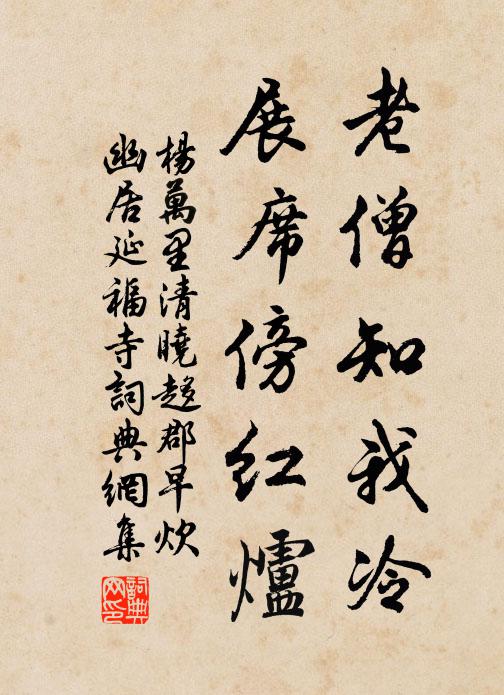 老僧知我冷
展席傍紅爐
楊萬里清曉趍郡早炊
幽居延福寺詞典網集
詞典
网印